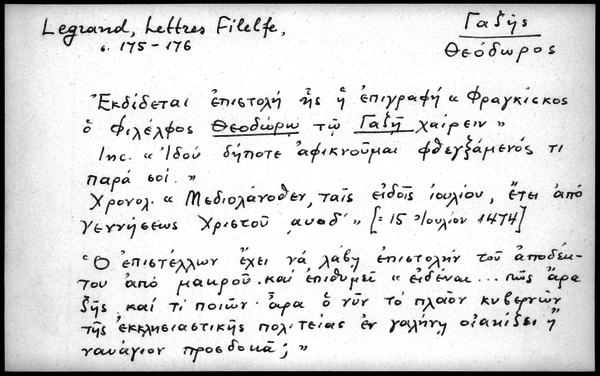 Legrand, Lettres Filelfe,
Γαζῆς
σ. 175-176
Θεόδωρος
Ἐκδίδεται ἐπιστολή ἧς ἡ ἐπιγραφή « Φραγκίσκος
ὁ Φιλέλφος Θεοδώρῳ τῷ Γαζῇ χαίρειν »
Inc. « Ἰδού δήποτε ἀφικνοῦμαι φθεγξάμενός τι
παρά σοί. »
Χρονολ. « Μεδιολάνοθεν, ταῖς εἰδοῖς ἰουλίου, ἔτει ἀπό
γεννήσεως Χριστοῦ αυοδ´ » [= 15 Ἰουλίου 1474]
Ὁ ἐπιστέλλων ἔχει νά λάβῃ ἐπιστολήν τοῦ ἀποδέκ-
του ἀπό μακροῦ. καί ἐπιθυμεῖ « εἰδέναι ... πῶς ἄρα
ζῇς, καί τί ποιῶν· ἆρα ὁ νῦν τό πλοῖον κυβερνῶν
τῆς ἐκκλησιαστικῆς πολιτείας ἐν γαλήνῃ οἰακίζει ἤ
ναυάγιον προσδοκᾷ; »